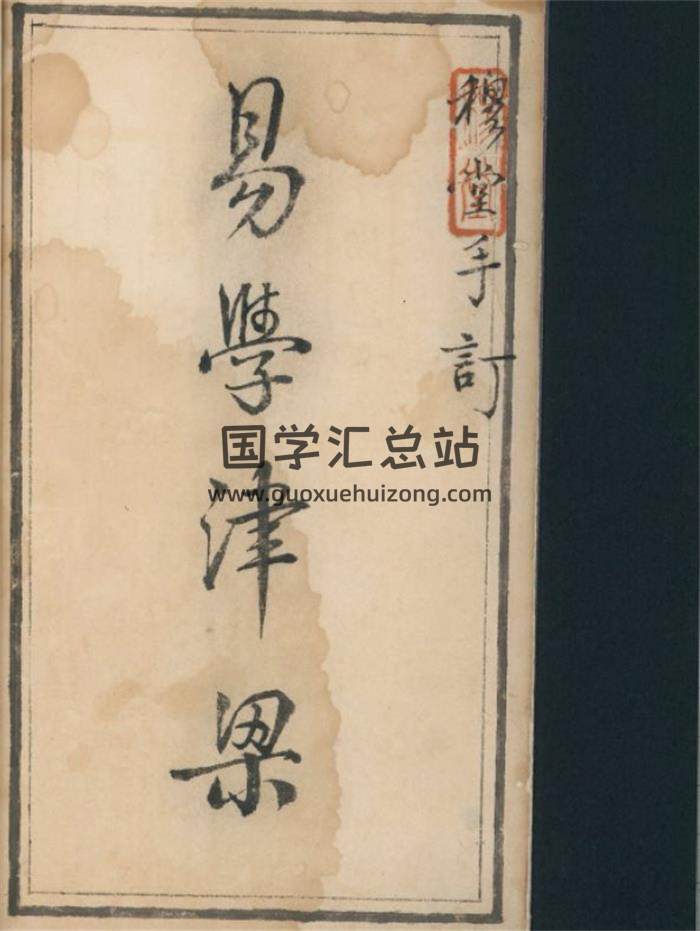 穆堂手訂
易學津梁
国学汇总站
www.guoxuehuizong.com